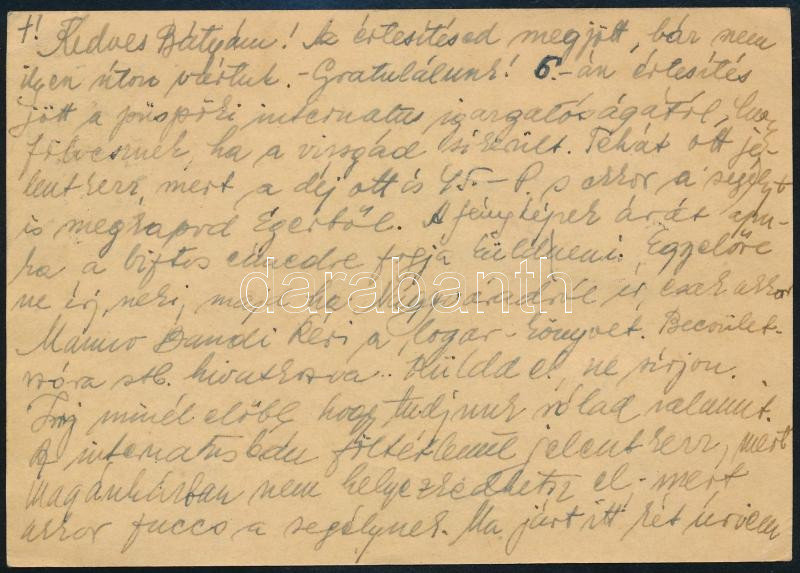 +!
Kedves Bátyám! Az értesítésed megjött, bár nem
ilyen úton vártuk. - Gratulálunk! 6.-án értesítés
jött a püspöki internatus igazgatóságától, hogy
fölvesznek, ha a vizsgád sikerült. Tehát ott je-
lentkezz, mert a díj ott is 45.- P. s akkor a segélyt
is megkapod Egertől. A fényképek árát apu-
ka a biztos címedre fogja küldeni. Egyelőre
ne írj neki, majd ha Nagyváradról ír, csak akkor
Manno Bandi kéri a logar-könyvet. Becsület-
szóra stb. hivatkozva. Küldd el, ne sírjon.
Írj minél előbb, hogy tudjunk rólad valamit.
Az internatusban föltétlenül jelentkezz, mert
magánházban nem helyezkedhetsz el, mert
akkor fuccs a segélynek. Ma járt itt két úrvezető
darabanth